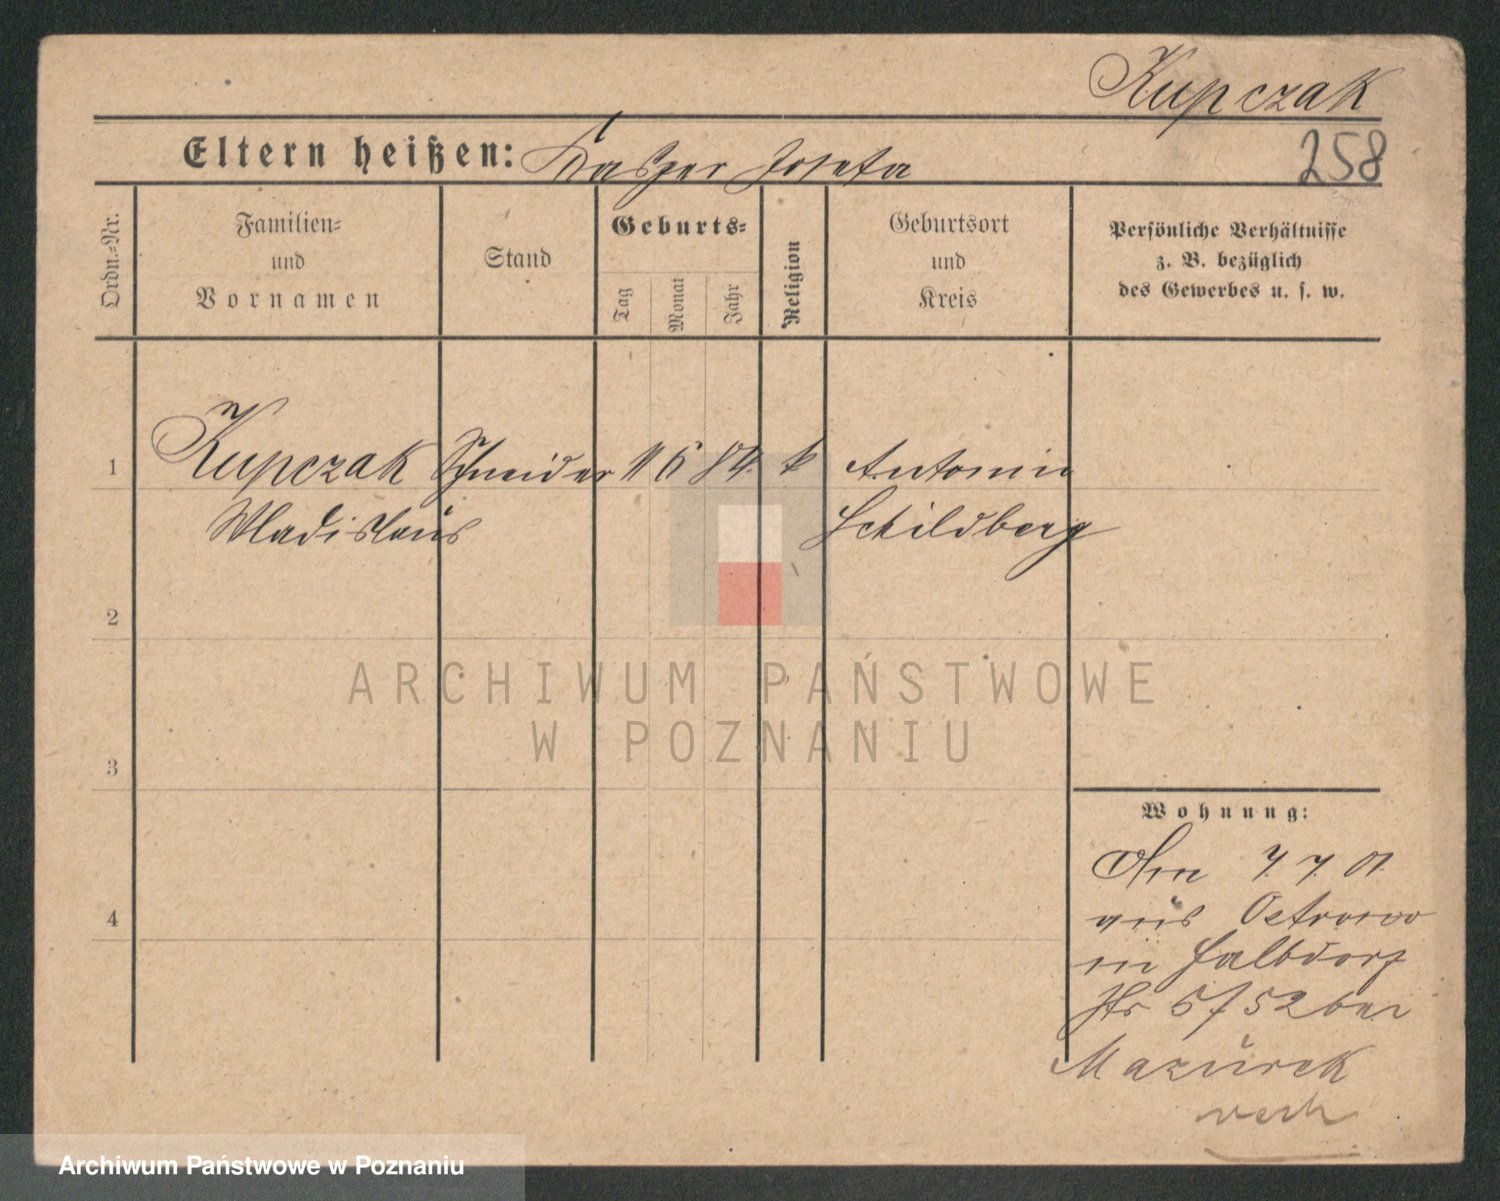 Kupczak
258
Eltern heißen: Kasper Josefa
Ordn.-Nr.
Familien-
und
Vornamen
Stand
Geburts-
Tag
Monat
Jahr
Religion
Geburtsort
und
Kreis
Persönliche Verhältnisse
z. B. bezüglich
des Gewerbes u. s. w.
1 Kupczak Schneider 11 6 84. k Antonin
Wladislaus Schildberg
2
3
4
Wohnung:
Am 7. 7. 01.
aus Ostrowo
in Halbdorf
Str 5/52 bei
Mazurek
ARCHIWUM PAŃSTWOWE
W POZNANIU
Archiwum Państwowe w Poznaniu